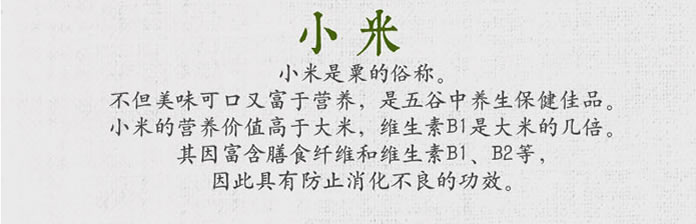 小米
小米是粟的俗称。
不但美味可口又富于营养，是五谷中养生保健佳品。
小米的营养价值高于大米，维生素B1是大米的几倍。
其因富含膳食纤维和维生素B1、B2等，
因此具有防止消化不良的功效。